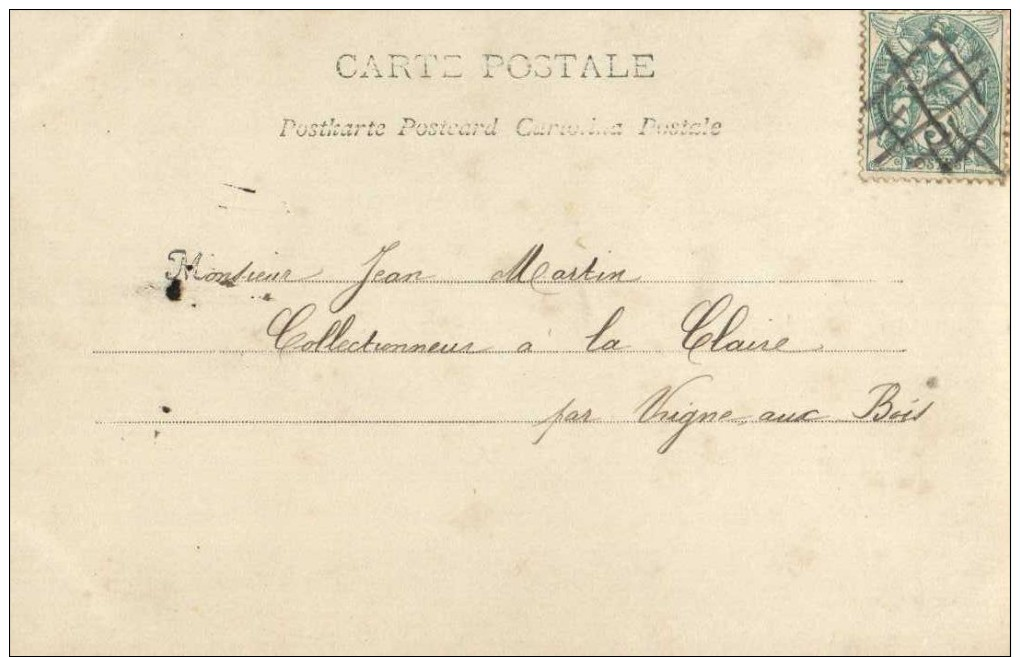 CARTE POSTALE
Postkarte Postcard Cartolina Postale
Monsieur Jean Martin
Collectionneur à la Claire
par Vrigne aux Bois
5
POSTES